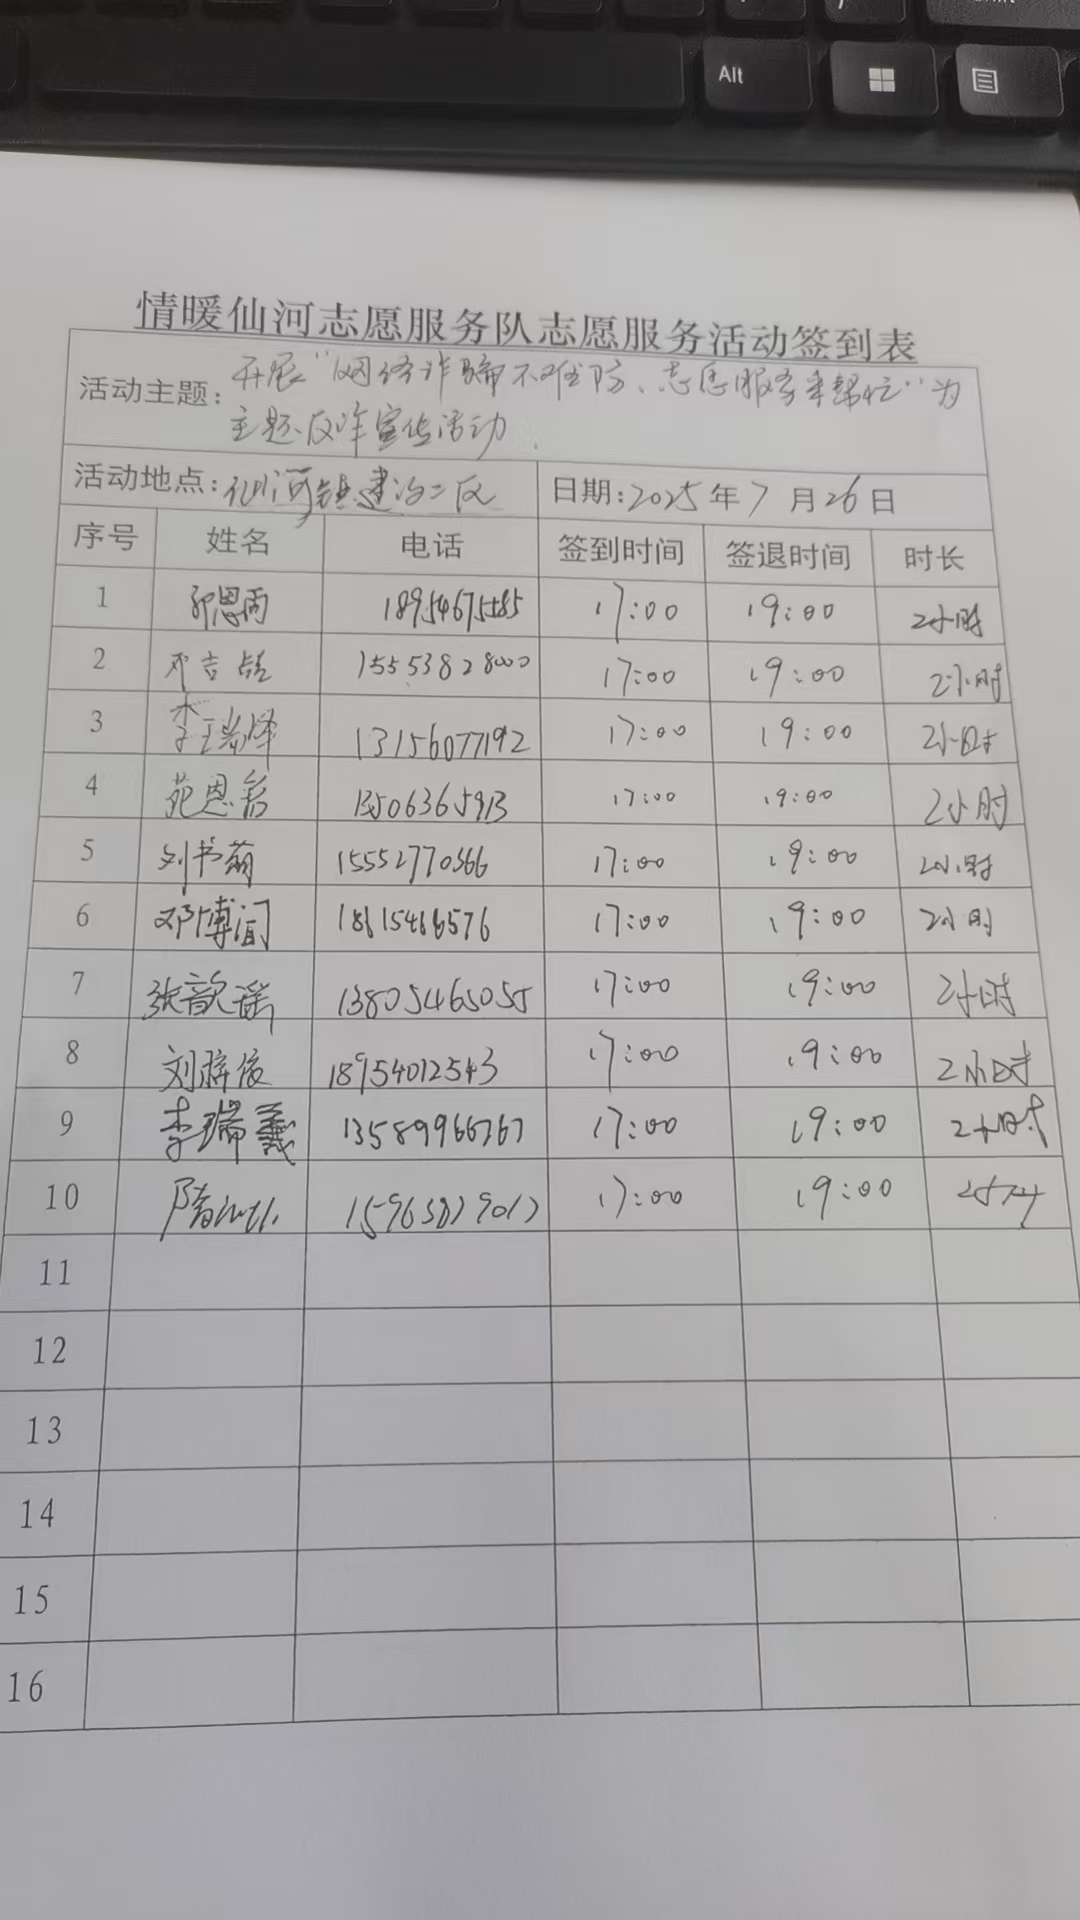 Alt
情暖仙河志愿服务队志愿服务活动签到表
活动主题: 开展"网络诈骗不难防、志愿服务来帮忙"为
主题反诈宣传活动
活动地点: 仙河镇建设二区 日期: 2025年7月26日
序号 姓名 电话 签到时间 签退时间 时长
1 17:00 19:00 2小时
2 15553828000 17:00 19:00 2小时
3 李瑞泽 13156077192 17:00 19:00 2小时
4 13506365913 17:00 19:00 2小时
5 刘书萌 15552770366 17:00 19:00 2小时
6 邓博闻 17:00 19:00 2小时
7 张歆谣 13805465055 17:00 19:00 2小时
8 18954012543 17:00 19:00 2小时
9 李瑞羲 13589966767 17:00 19:00 2小时
10 17:00 19:00
11
12
13
14
15
16